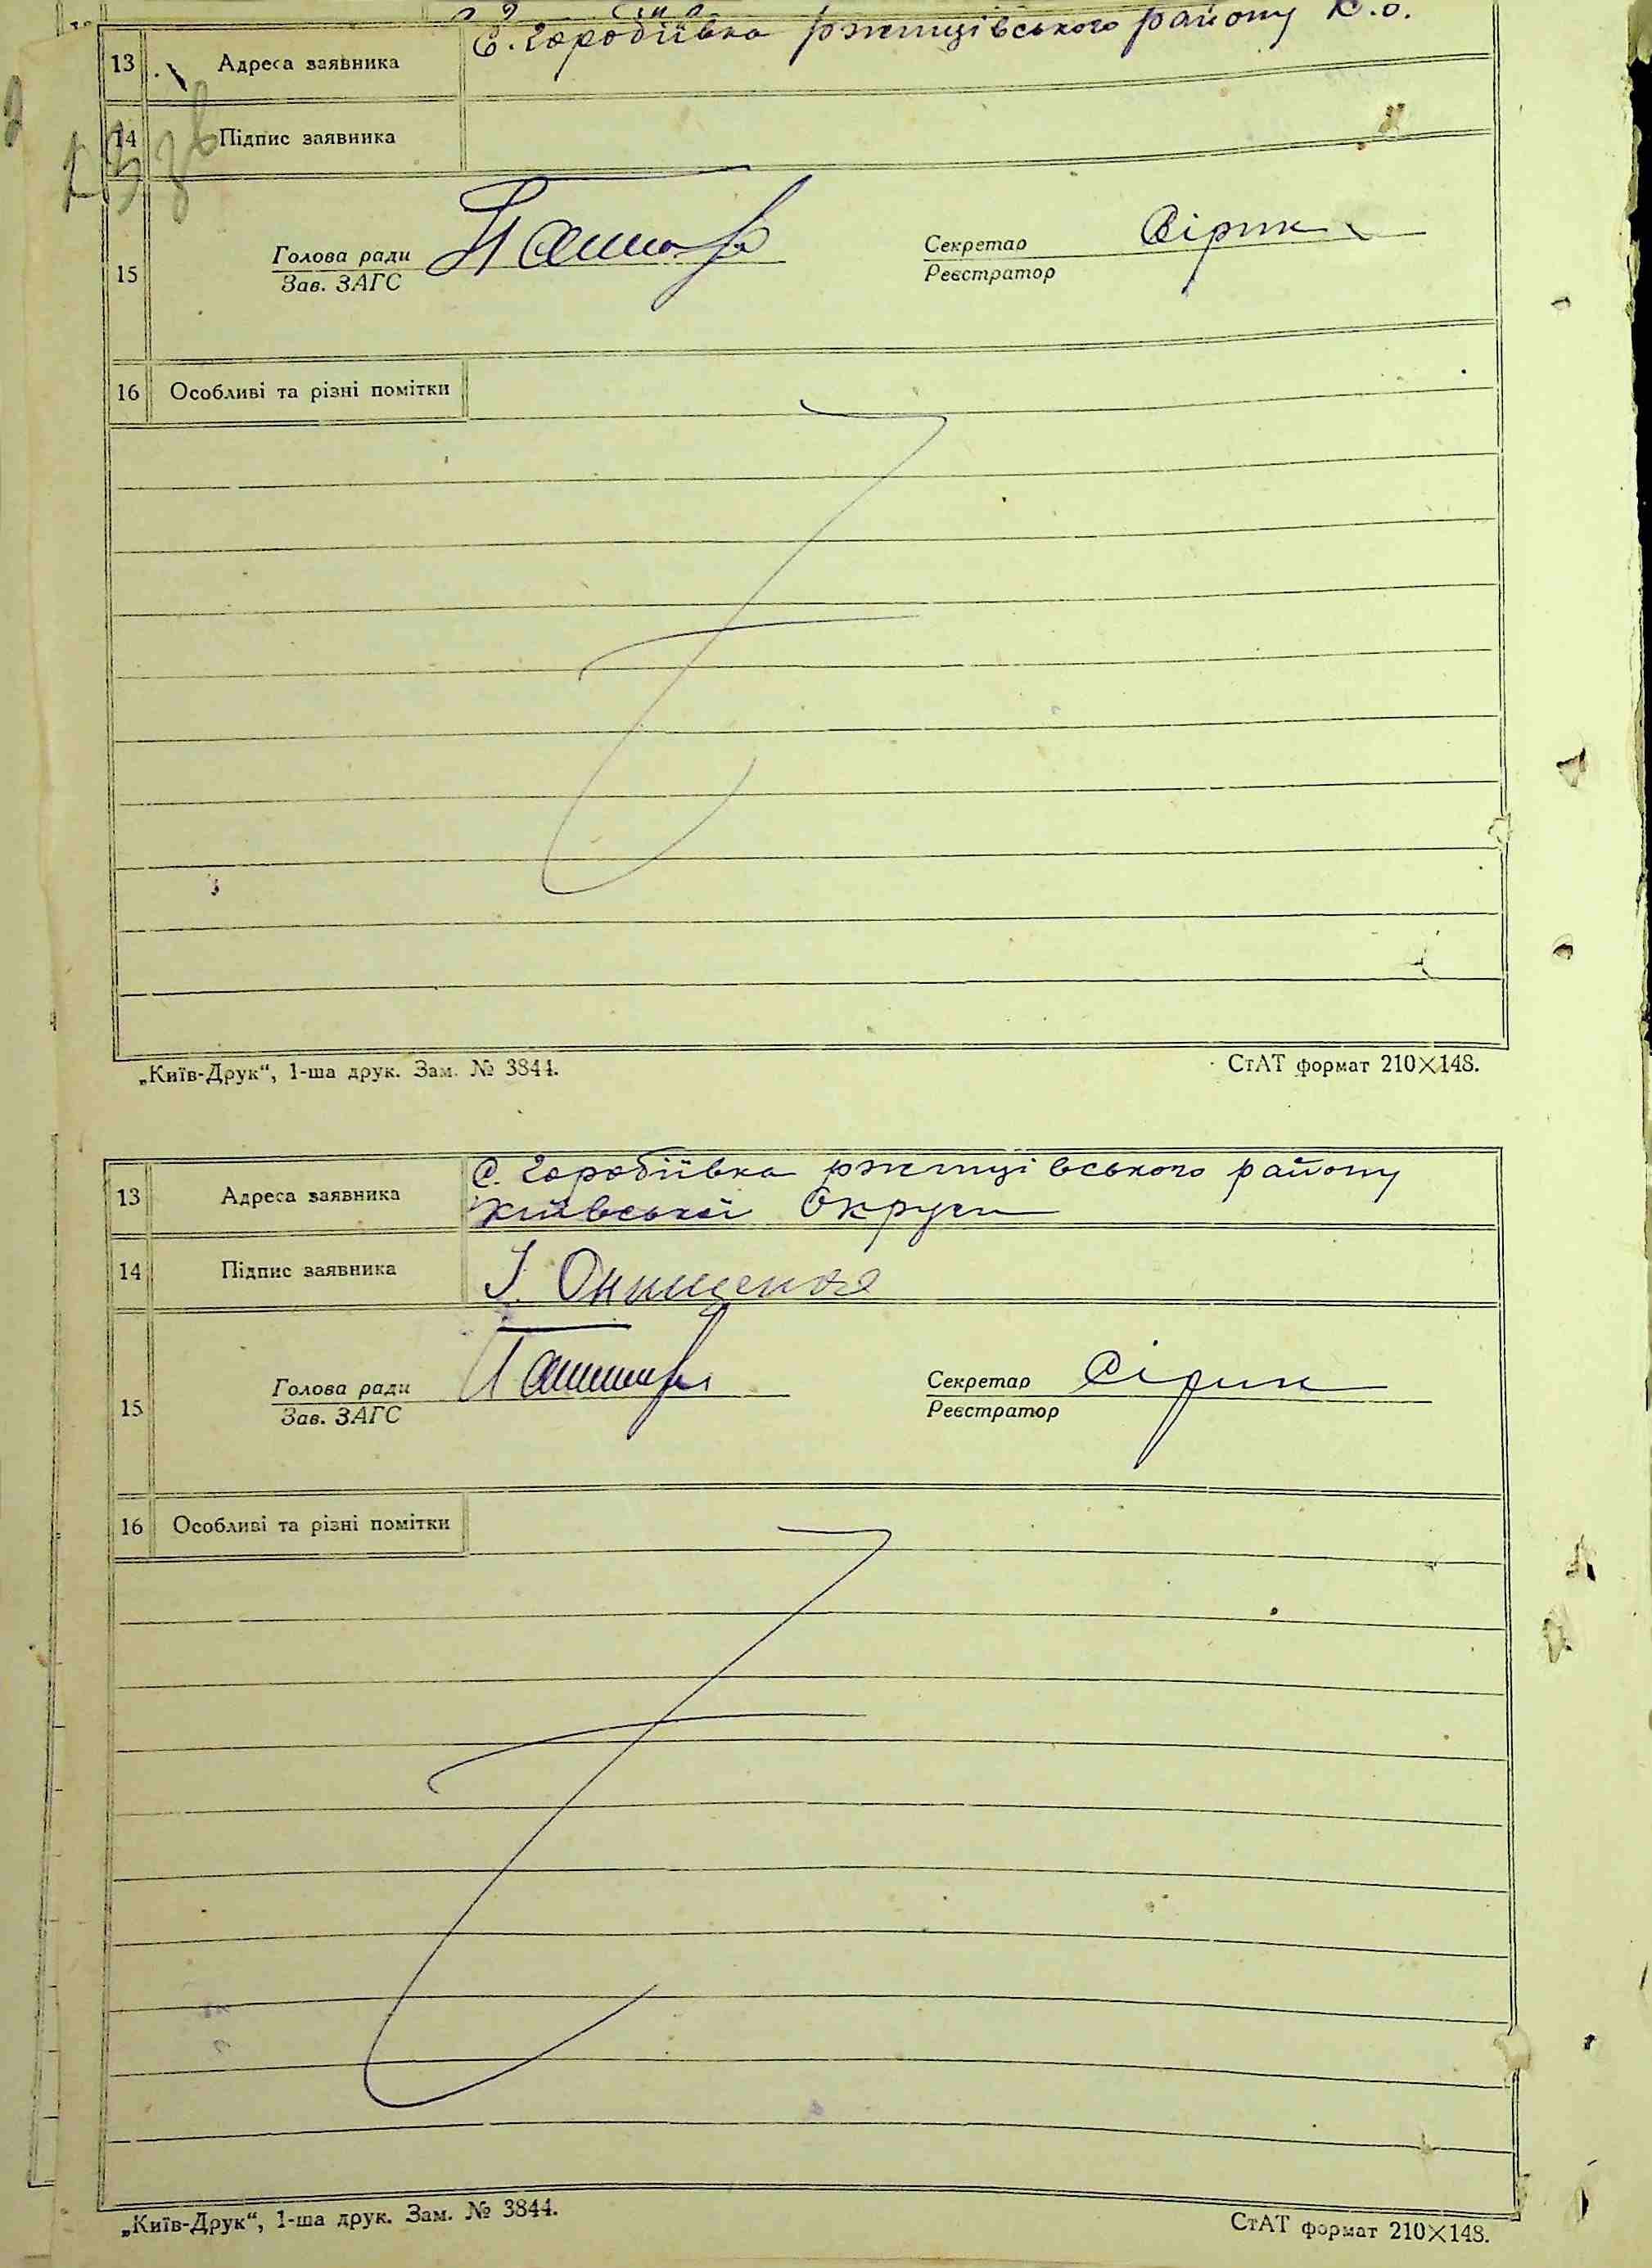 С. Горобіївка ржищівського району К.о.
13 Адреса заявника
14 Підпис заявника
Голова ради
Зав. ЗАГС
Секретар Сірик
Реєстратор
15
16 Особливі та різні помітки
„Київ-Друк“, 1-ша друк. Зам. № 3844. СтАТ формат 210×148.
13 Адреса заявника С. Горобіївка ржищівського району
Київської Округи
14 Підпис заявника І. Онищенко
Голова ради
Зав. ЗАГС
Секретар Сірик
Реєстратор
15
16 Особливі та різні помітки
„Київ-Друк“, 1-ша друк. Зам. № 3844. СтАТ формат 210×148.